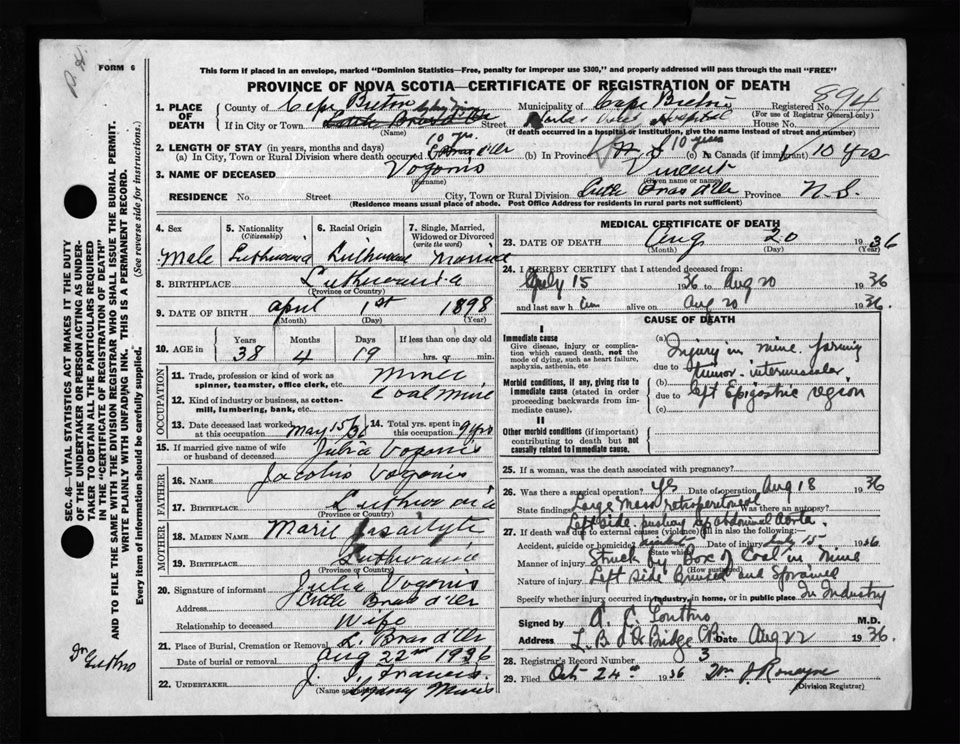 FORM 6
This form if placed in an envelope, marked "Dominion Statistics—Free, penalty for improper use $300," and properly addressed will pass through the mail "FREE"
PROVINCE OF NOVA SCOTIA—CERTIFICATE OF REGISTRATION OF DEATH
894
1. PLACE OF DEATH County of Cape Breton Municipality of Cape Breton Registered No. (For use of Registrar General only)
If in City or Town Little Bras d'Or (Name) Street Hospital House No.
(If death occurred in a hospital or institution, give the name instead of street and number)
2. LENGTH OF STAY (in years, months and days)
(a) In City, Town or Rural Division where death occurred 10 yrs. L Bras d'Or (b) In Province N S 10 years (c) In Canada (if immigrant) 10 yrs
3. NAME OF DECEASED Vogonis (Surname) Vincent (Given name or names)
RESIDENCE No. Street City, Town or Rural Division Little Bras d'Or Province N. S.
(Residence means usual place of abode. Post Office Address for residents in rural parts not sufficient)
4. Sex Male
5. Nationality (Citizenship)
6. Racial Origin
7. Single, Married, Widowed or Divorced (write the word) Married
8. BIRTHPLACE Luthuania (Province or Country)
9. DATE OF BIRTH April (Month) 1st (Day) 1898 (Year)
10. AGE in Years 38 Months 4 Days 19 If less than one day old hrs. or min.
OCCUPATION
11. Trade, profession or kind of work as spinner, teamster, office clerk, etc. Miner
12. Kind of industry or business, as cotton-mill, lumbering, bank, etc. Coal Mine
13. Date deceased last worked at this occupation May 15/36 14. Total yrs. spent in this occupation 9 yrs
15. If married give name of wife or husband of deceased Julia Vogonis
FATHER
16. Name Vogonis
17. Birthplace (Province or Country)
MOTHER
18. MAIDEN NAME Marie
19. BIRTHPLACE Luthuania (Province or Country)
20. Signature of informant Julia Vogonis
Address Little Bras d'Or
Relationship to deceased Wife
21. Place of Burial, Cremation or Removal L. Bras d'Or
Date of burial or removal Aug 22nd 1936
22. UNDERTAKER J. Francis (Name and address) Sydney Mines
MEDICAL CERTIFICATE OF DEATH
23. DATE OF DEATH Aug (Month) 20 (Day) 1936 (Year)
24. I HEREBY CERTIFY that I attended deceased from:
July 15 1936 to Aug 20 1936
and last saw h im alive on Aug 20 1936.
CAUSE OF DEATH
I
Immediate cause
Give disease, injury or complication which caused death, not the mode of dying, such as heart failure, asphyxia, asthenia, etc
Morbid conditions, if any, giving rise to immediate cause (stated in order proceeding backwards from immediate cause).
II
Other morbid conditions (if important) contributing to death but not causally related to immediate cause.
(a) Injury in mine forming
due to tumor intermuscular,
(b)
due to left Epigastric region
(c)
25. If a woman, was the death associated with pregnancy?
26. Was there a surgical operation? Yes Date of operation Aug 18 1936
State findings Large Mass retroperitoneal
Left side pushing up abdominal Aorta.
27. If death was due to external causes (violence) fill in also the following:—
Accident, suicide or homicide? (State which) Date of injury July 15 1936
Manner of injury Struck by Box of Coal in Mine (How sustained)
Nature of injury Left side Bruised and Sprained
Specify whether injury occurred in industry, in home, or in public place In Industry
Signed by M.D.
Address L. B d'Or Bridge C.B. Date Aug 22 1936.
28. Registrar's Record Number 3
29. Filed Oct 24th 1936 (Division Registrar)
SEC. 46—VITAL STATISTICS ACT MAKES IT THE DUTY
OF THE UNDERTAKER OR PERSON ACTING AS UNDER-
TAKER TO OBTAIN ALL THE PARTICULARS REQUIRED
IN THE "CERTIFICATE OF REGISTRATION OF DEATH"
AND TO FILE THE SAME WITH THE DIVISION REGISTRAR WHO SHALL ISSUE THE BURIAL PERMIT.
WRITE PLAINLY WITH UNFADING INK. THIS IS A PERMANENT RECORD.
Every item of information should be carefully supplied. (See reverse side for instructions.)